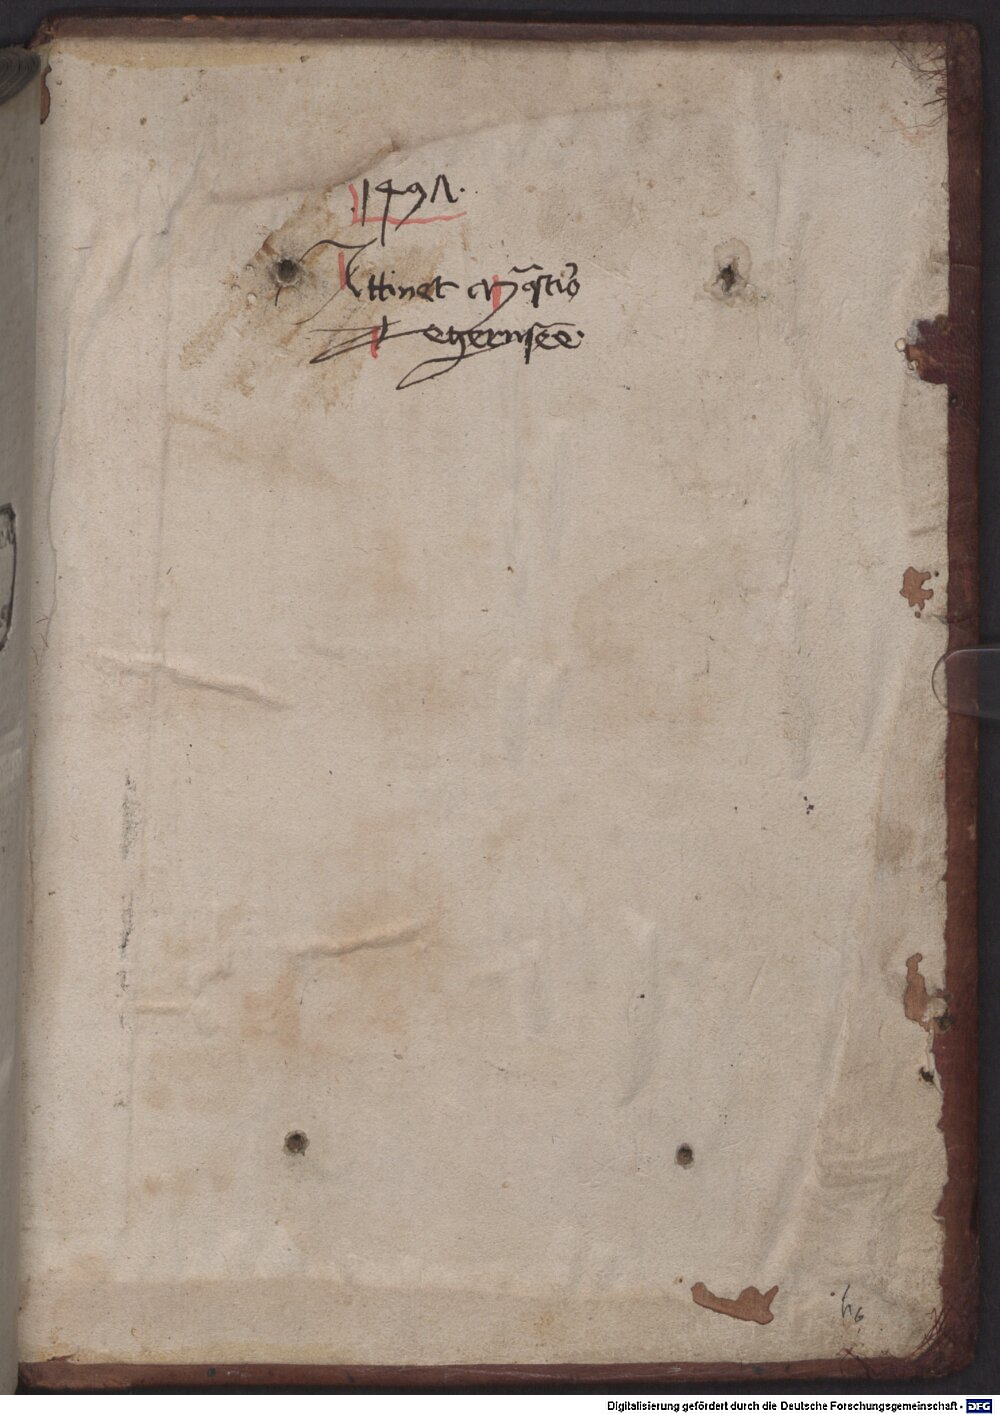 .1497.
Attinet Mōstio
Tegernsēe.
Digitalisierung gefördert durch die Deutsche Forschungsgemeinschaft - DFG